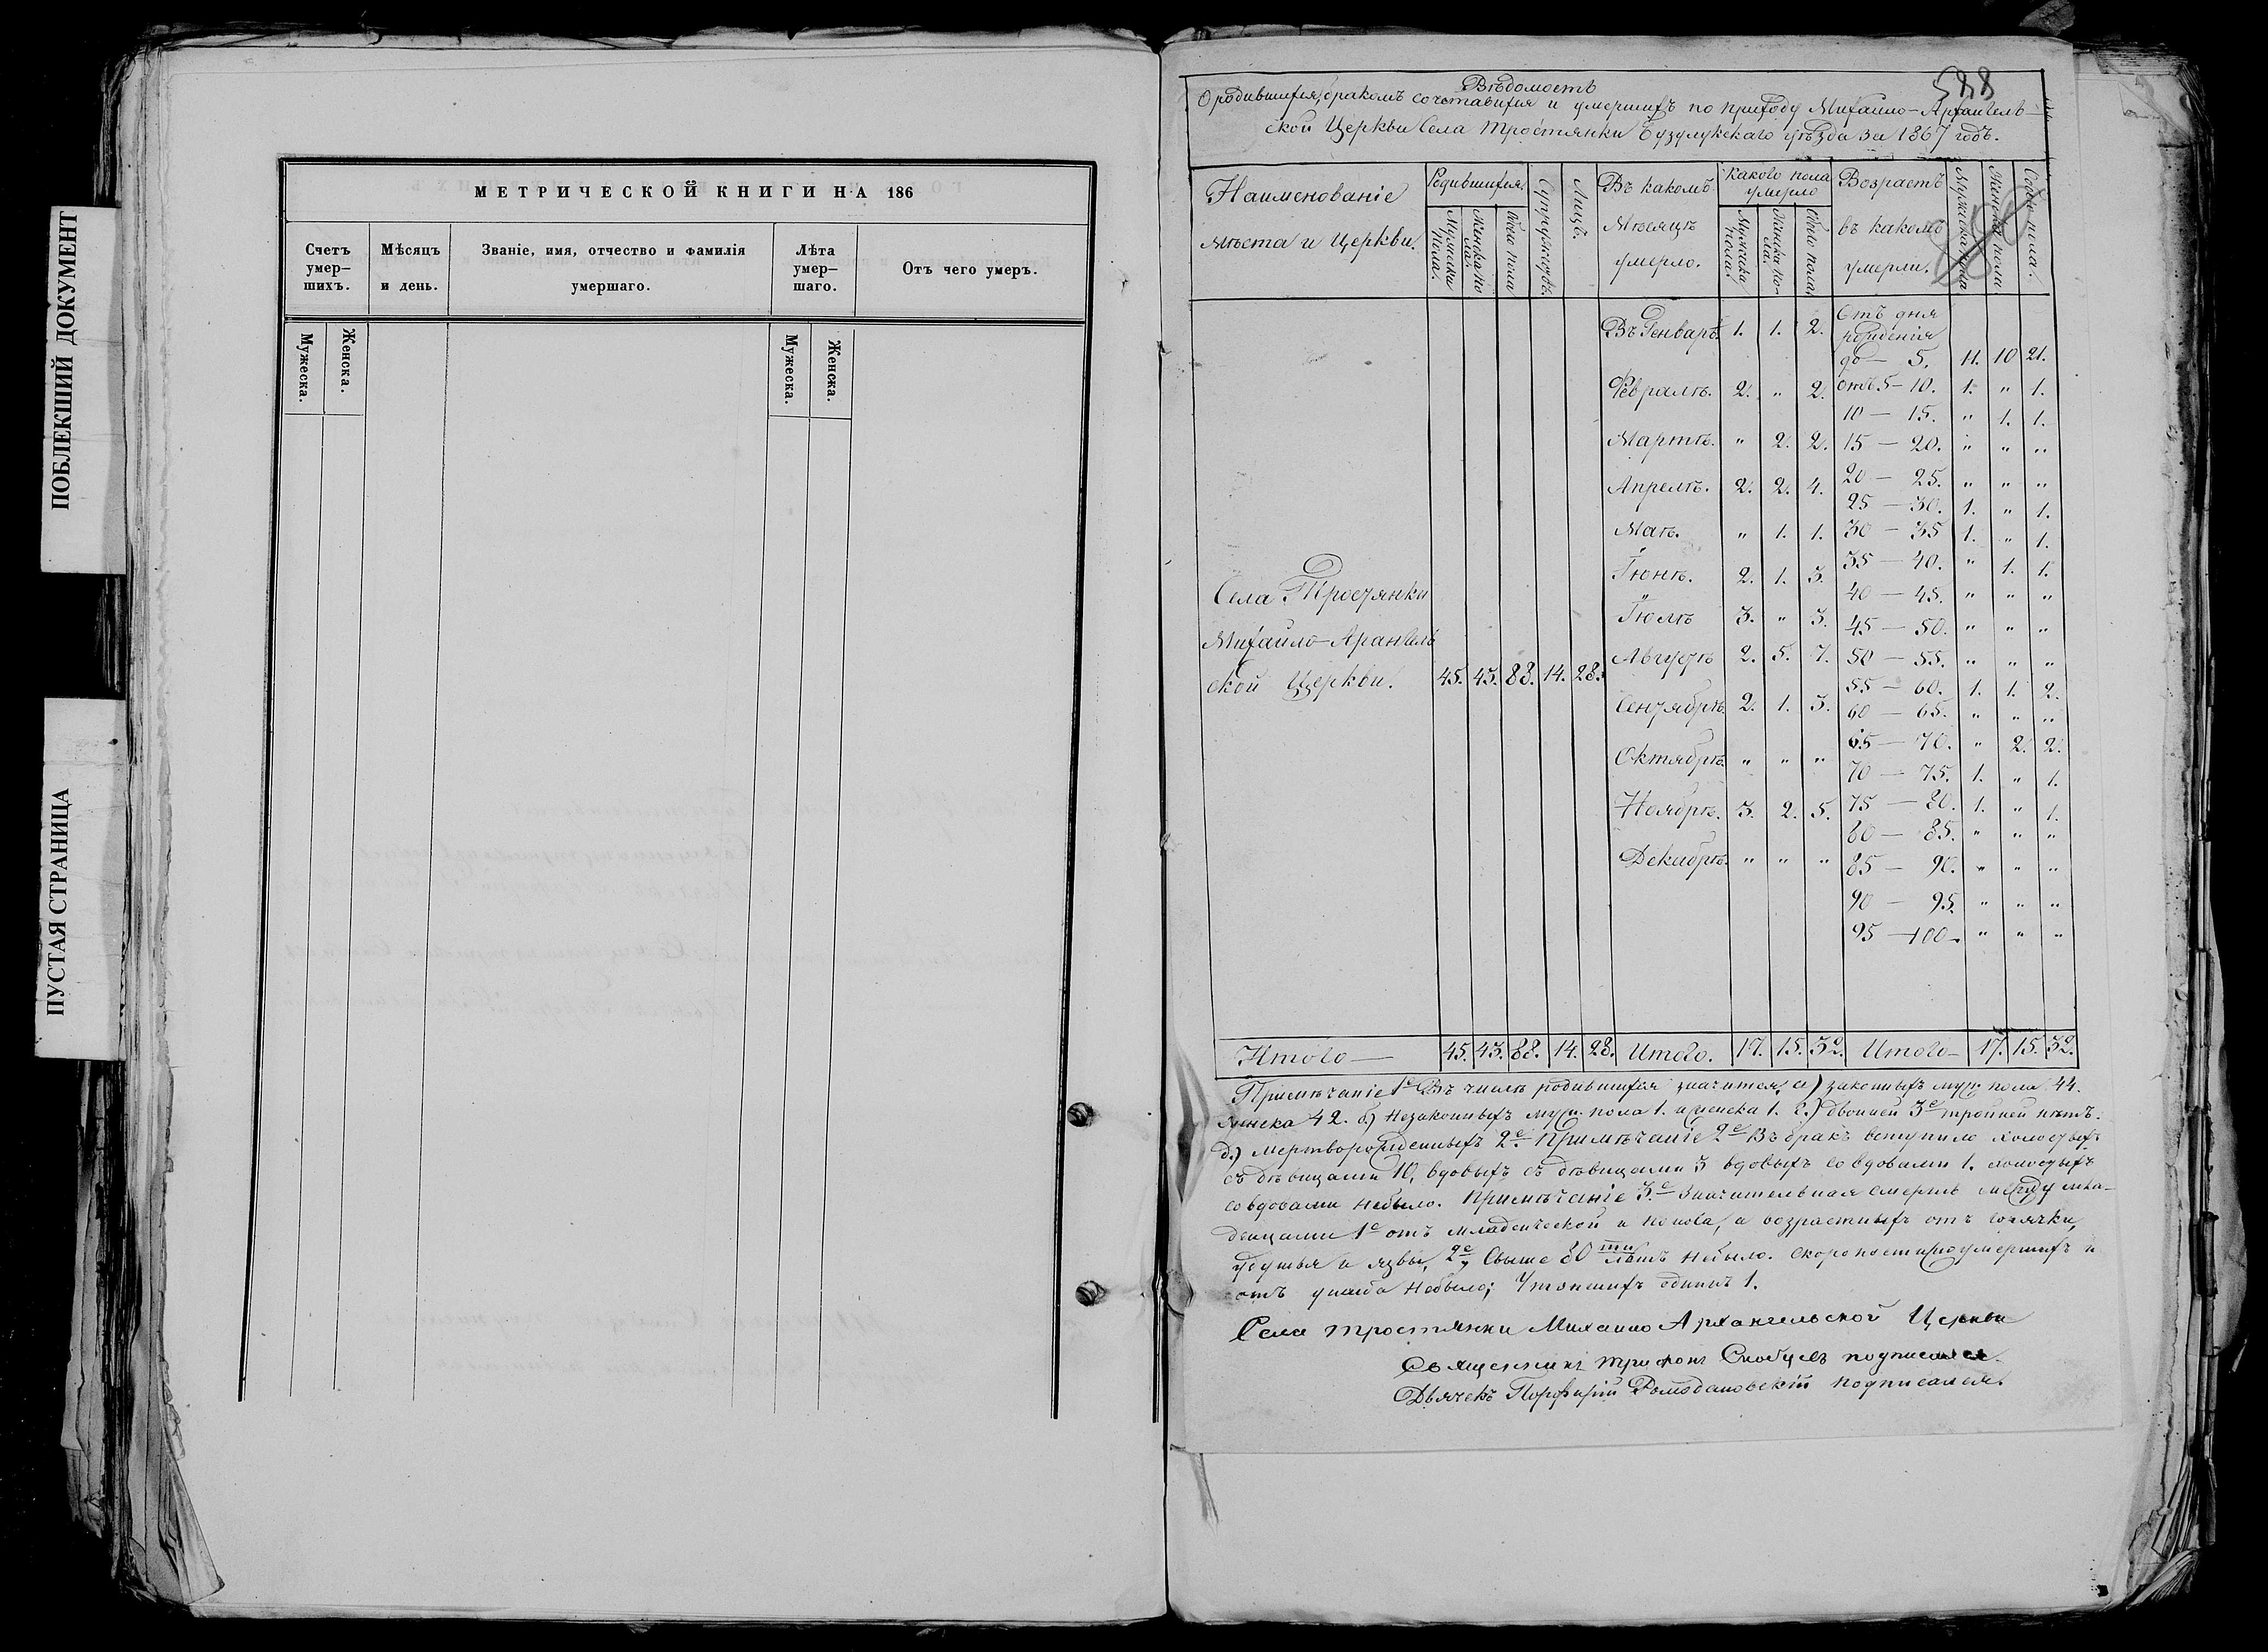 ПОБЛЕКШИЙ ДОКУМЕНТ
ПУСТАЯ СТРАНИЦА
МЕТРИЧЕСКОЙ КНИГИ НА 186
Счетъ умер-шихъ.
Мѣсяцъ и день.
Званіе, имя, отчество и фамилія умершаго.
Лѣта умер-шаго.
Отъ чего умеръ.
Мужеска. Женска. Мужеска. Женска.
588
Вѣдомость
О родившихся, бракомъ сочетавшихся и умершихъ по приходу Михайло-Архангель-
ской Церкви Села Тростянки Бузулукскаго уѣзда за 1867 годъ.
Наименованіе мѣста и Церкви.
Родившихся.
Мужска пола. Женска пола. Обоего пола
Супружествъ.
Лицъ.
Въ какомъ Мѣсяцѣ умерло.
Какого пола умерло
Мужска пола. Женска по-ла. Обоего пола
Возрастъ въ какомъ умерли.
Мужска пола Женска пола Обоего пола.
Въ Генварѣ. 1. 1. 2. Отъ дня рожденія до - 5. 11. 10 21.
Февралѣ. 2. " 2. отъ 5 - 10. 1. " 1.
10 - 15. " 1. 1.
Мартѣ. " 2. 2. 15 - 20. " " "
Апрелѣ. 2. 2. 4. 20 - 25. " " "
25 - 30. 1. " 1.
Маѣ. " 1. 1. 30 - 35 1. " 1.
Іюнѣ. 2. 1. 3. 35 - 40. " 1. 1.
40 - 45. " " "
Іюлѣ 3. " 3. 45 - 50. " " "
Августѣ 2. 5. 7. 50 - 55. " " "
55 - 60. 1. 1. 2.
Сентябрѣ. 2. 1. 3. 60 - 65. " " "
65 - 70. " 2. 2.
Октябрѣ. " " " 70 - 75. 1. " 1.
Ноябрѣ. 3. 2. 5. 75 - 80. 1. " 1.
80 - 85. " " "
Декабрѣ. " " " 85 - 90. " " "
90 - 95. " " "
95 - 100. " " "
Села Тростянки
Михайло-Арангель
ской Церкви. 45. 43. 88. 14. 28.
Итого — 45. 43. 88. 14. 28. Итого. 17. 15. 32. Итого - 17. 15. 32.
Примѣчаніе 1е Въ числѣ родившихся значится, а) законныхъ муж. пола 44.
женска 42. б) Незаконныхъ муж. пола 1. женска 1. в) двойней 3е тройней нѣтъ.
д.) мерворожденныхъ 2е. Примѣчаніе 2е Въ бракъ вступило холостыхъ
съ дѣвицами 10, вдовыхъ съ дѣвицами 3 вдовыхъ со вдовами 1. холостыхъ
со вдовами небыло. Примѣчаніе 3.е Значительная смерть между мла-
денцами 1е отъ младенческой и поноса, а возрастныхъ отъ горячки,
удушья и язвы, 2е, Свыше 80ти лѣтъ небыло. скоропостижноумершихъ и
отъ ушиба небыло; Утопшихъ одинъ 1.
Села Тростянки Михаило Архангельской Церкви
Священникъ Трифонъ подписался.
Дьячекъ Порфирій Ромодановскій подписался.